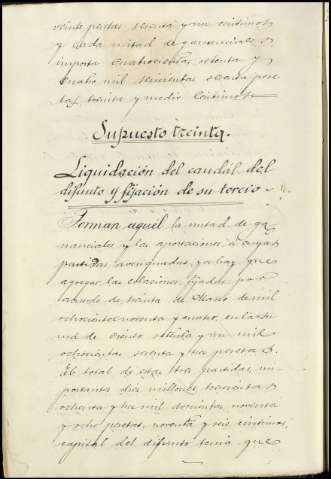 veinte pesetas sesenta y un centimos
y cada mitad de gananciales
importa cuatrocientas setenta y
cuatro mil seiscientas pese
tas treinta y medio centimos
Supuesto treinta.
Liquidación del caudál del
difunto y fijación de su tercio
Forman aquél la mitad de ga
nanciales y las aportaciones á cuyas
partidas avanzadas, ya hay que
agregar las colaciones fijadas por
acuerdo de treinta de Marzo de mil
ochocientos noventa y cuatro, en la
ud de ciento setenta y un mil
ochocientas sesenta y tres pesetas
El total de esas tres partidas, im
portantes dos millones trescientas
ochenta y tres mil doscientas noventa
y ocho pesetas, noventa y seis centimos,
capital del difunto tenia que